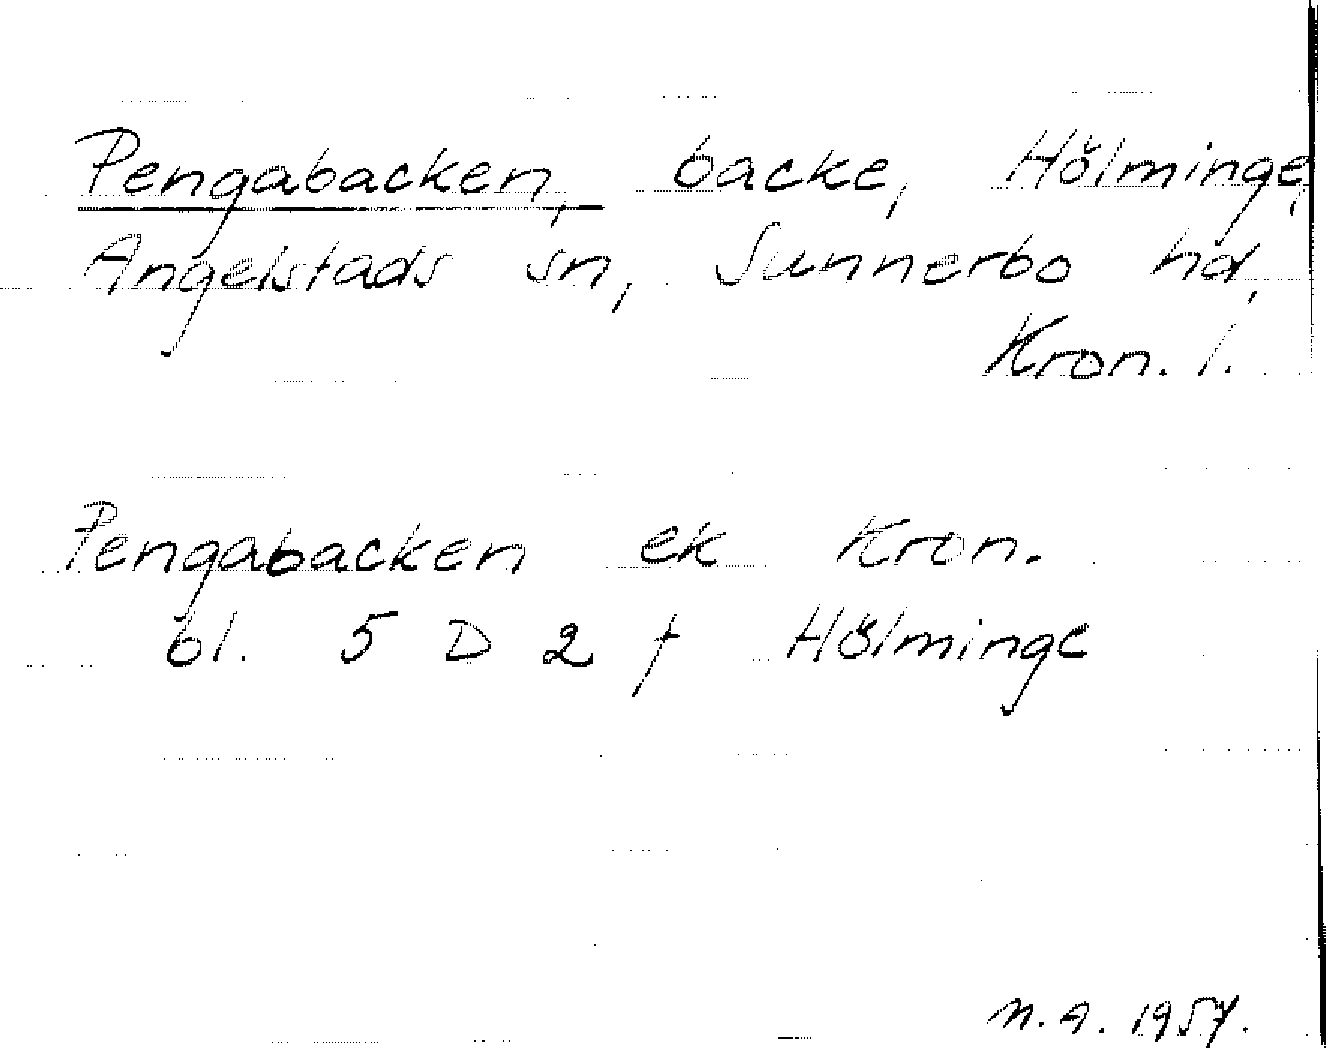 Pengabacken, backe, Hölminge,
Angelstads sn, Sunnerbo hd,
Kron. l.
Pengabacken ek Kron.
bl. 5 D 2 f Hölminge
N.A. 1957.